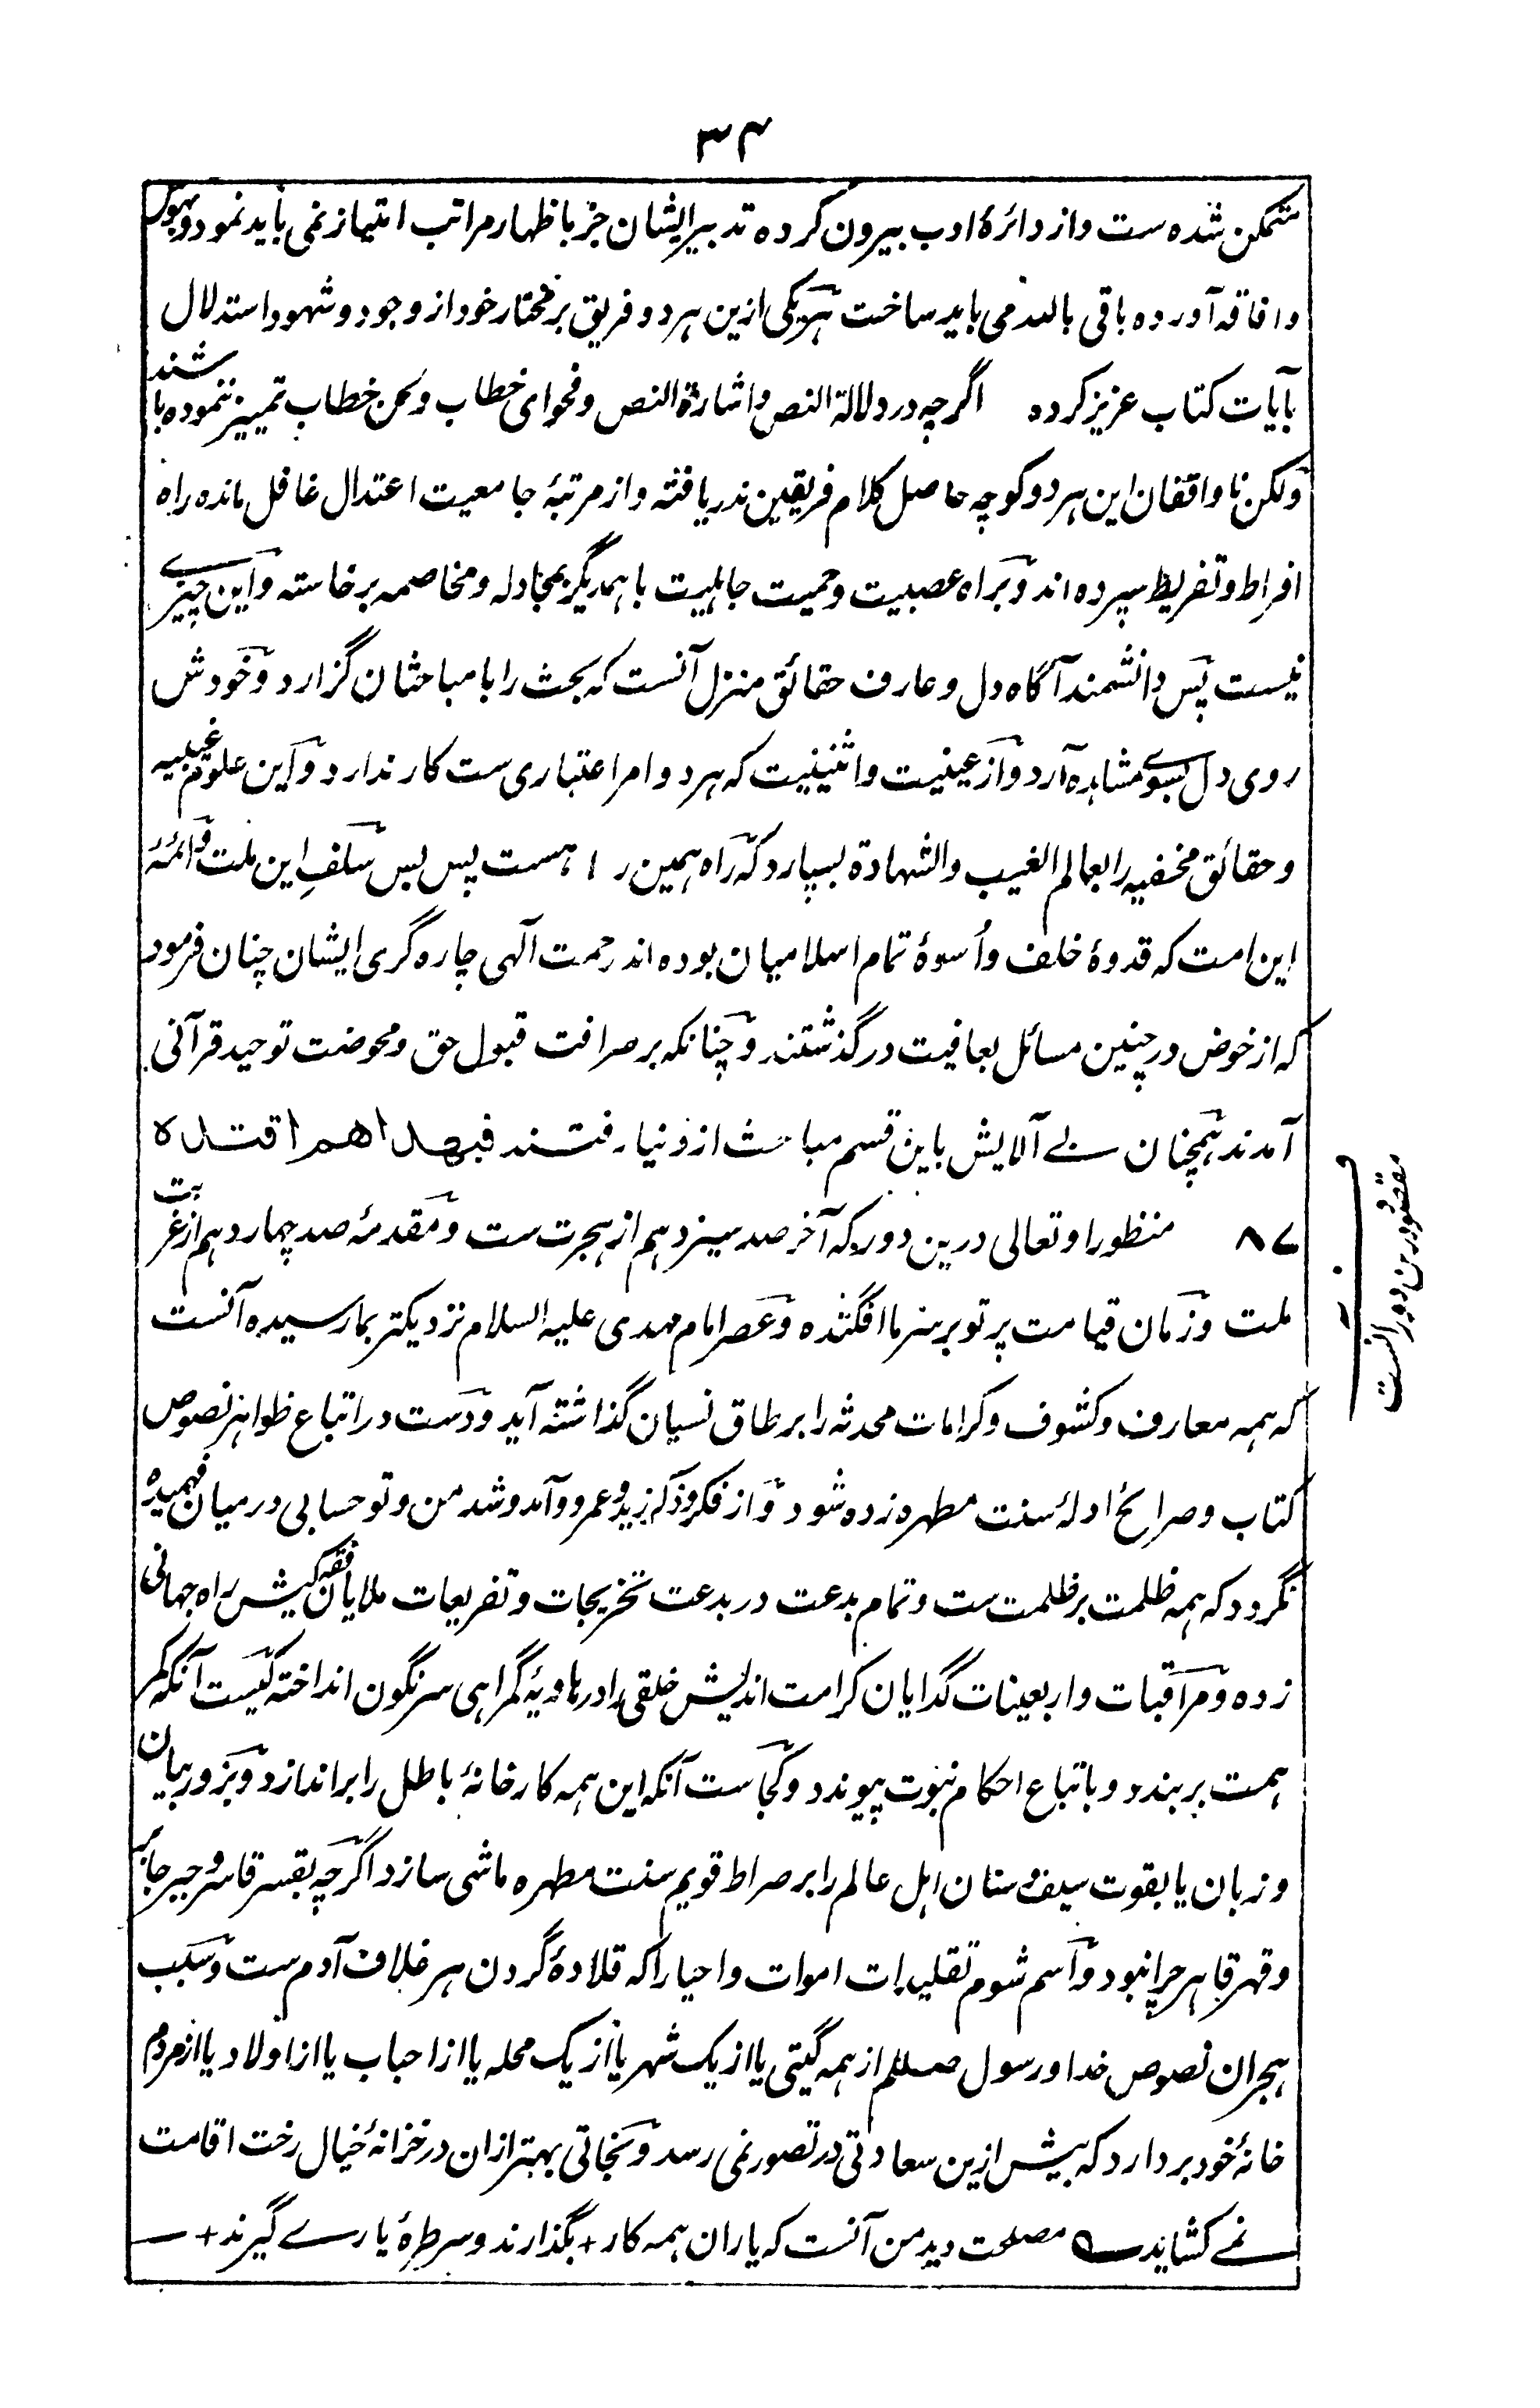 ۳۴
متمکن شده ست و از دائرهٔ ادب بیرون کرده تدبیر ایشان جز باظهار مراتب امتیاز نمی باید نمود و بهوش
و افاقه آورده باقی بالله می باید ساخت هر یکی ازین هر دو فریق بر مختار خود از وجود و شهود استدلال
بآیات کتاب عزیز کرده اگرچه در دلالة النص و اشارة النص و فحوای خطاب و لحن خطاب تمییز ننموده باشند
ولکن ناواقفان این هر دو کوچه حاصل کلام فریقین ندریافته و از مرتبهٔ جامعیت اعتدال غافل مانده راه
افراط و تفریط سپرده اند و براه عصبیت و حمیت جاهلیت با همدیگر بمجادله و مخاصمه برخاسته و این چیزے
نیست پس دانشمند آگاه دل و عارف حقائق منزل آنست که بحث را با مباحثان گزارد و خودش
روی دل بسوے مشاهده آرد و از عینیت و اثنینیت که هر دو امر اعتباری ست کار ندارد و این علوم غیبیه
و حقائق مخفیه را بعالم الغیب والشهادة بسپارد که راه همین راہست پس بس سلفِ این ملت و ائمهٔ
این امت که قدوهٔ خلف و اُسوهٔ تمام اسلامیان بوده اند رحمت آلهی چاره گری ایشان چنان فرمود
که از خوض در چنین مسائل بعافیت درگذشتند و چنانکه بر صرافت قبول حق و محوضت توحید قرآنی
آمدند همچنان بے آلایش باین قسم مباحث از دنیا رفتند فبهداهم اقتده
۸۷ منظور او تعالی درین دور که آخر صد سیزدهم از هجرت ست و مقدمهٔ صد چهاردهم از غربت
ملت و زمان قیامت پرتو بر سر ما افگنده و عصر امام مهدی علیه السلام نزدیکتر بما رسیده آنست
که همه معارف و کشوف و کرامات محدثه را بر طاق نسیان گذاشته آید و دست در اتباع ظواهر نصوص
کتاب و صرایح ادلهٔ سنت مطهره زده شود و از فکر و ذکر زید و عمرو و آمد و شد من و تو حسابی در میان فهمیده
نگردد که همه ظلمت بر ظلمت ست و تمام بدعت در بدعت تخریجات و تفریعات ملایان فقه کیش راه جهانی
زده و مراقبات و اربعینات گدایان کرامت اندیش خلقی را در هاویهٔ گمراهی سرنگون انداخته کیست آنکه کمر
همت بر بندد و باتباع احکام نبوت پیوندد و کجاست آنکه این همه کارخانهٔ باطل را براندازد و بزور بیان
و زبان یا بقوت سیف و سنان اهل عالم را بر صراط قویم سنت مطهره ماشی سازد اگرچه بقسر قاسر و جبر جابر
و قهر قاهر چرا نبود و اسم شوم تقلیدات اموات و احیا را که قلادهٔ گردن هر خلاف آدم ست و سبب
هجران نصوص خدا و رسول صلعم از همه گیتی یا از یک شهر یا از یک محله یا از احباب یا از اولاد یا از مردم
خانهٔ خود بردارد که بیش ازین سعادتی در تصور نمی رسد و نجاتی بهتر ازان در خزانهٔ خیال رخت اقامت
نمے کشاید ے مصلحت دید من آنست که یاران همه کار + بگذارند و سر طرهٔ یارے گیرند +
مقصود درین دور آنست